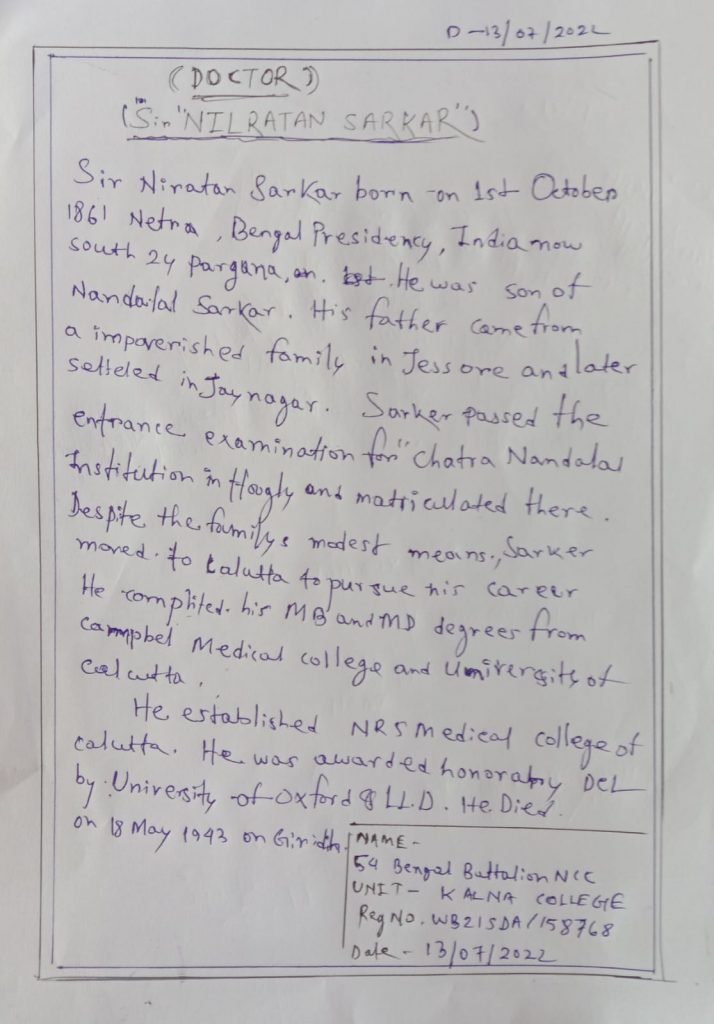 D-13/07/2022
(DOCTOR)
(Sir "NILRATAN SARKAR")
Sir Niratan Sarkar born on 1st October
1861 Netra, Bengal Presidency, India now
south 24 pargana, on. He was son of
Nandalal Sarkar. His father came from
a impoverished family in Jessore and later
setteled in Jaynagar. Sarker passed the
entrance examination for "Chatra Nandalal
Institution in Hoogly and matriculated there.
Despite the familys modest means, Sarker
moved. to Calutta to pursue his career
He complited. his MB and MD degrees from
Campbel Medical college and University of
Calcutta.
He established NRS Medical college of
calutta. He was awarded honorabry DCL
by University of Oxford & LL.D. He Died.
on 18 May 1943 on Giridih.
NAME -
54 Bengal Battalion NCC
UNIT - KALNA COLLEGE
Reg No. WB21SDA/158768
Date - 13/07/2022